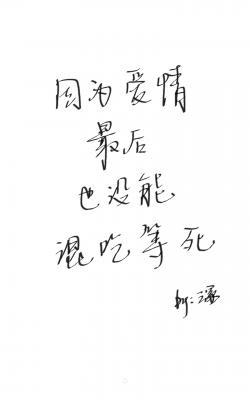 因为爱情
最后
也没能
混吃等死
by: